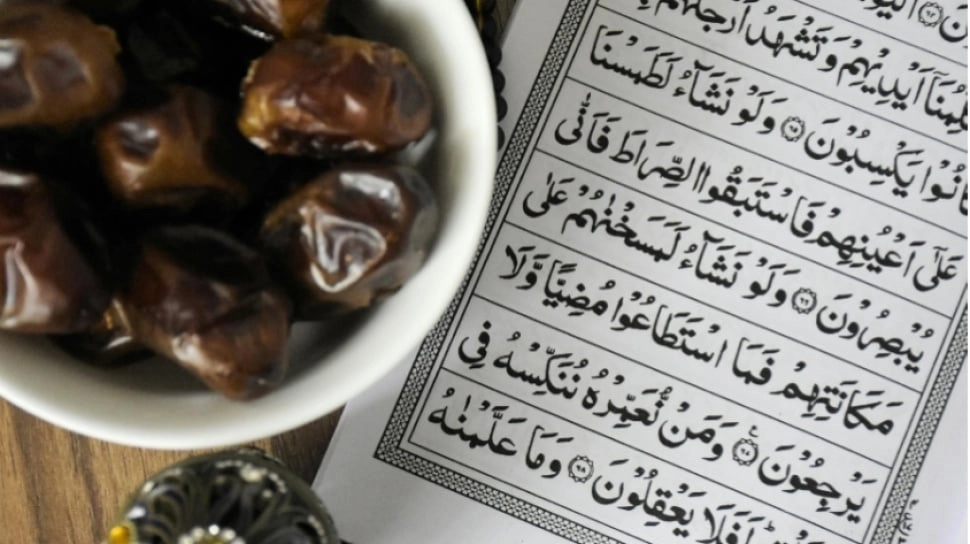 اَيْدِيْهِمْ وَتَشْهَدُ اَرْجُلُهُمْ
كَانُوْا يَكْسِبُوْنَ ۝۶۵ وَلَوْ نَشَآءُ لَطَمَسْنَا
عَلٰۤى اَعْيُنِهِمْ فَاسْتَبَقُوا الصِّرَاطَ فَاَنّٰى
يُبْصِرُوْنَ ۝۶۶ وَلَوْ نَشَآءُ لَمَسَخْنٰهُمْ عَلٰى
مَكَانَتِهِمْ فَمَا اسْتَطَاعُوْا مُضِيًّا وَّلَا
يَرْجِعُوْنَ ۝۶۷ وَمَنْ نُّعَمِّرْهُ نُنَكِّسْهُ فِى
اَفَلَا يَعْقِلُوْنَ ۝۶۸ وَمَا عَلَّمْنٰهُ